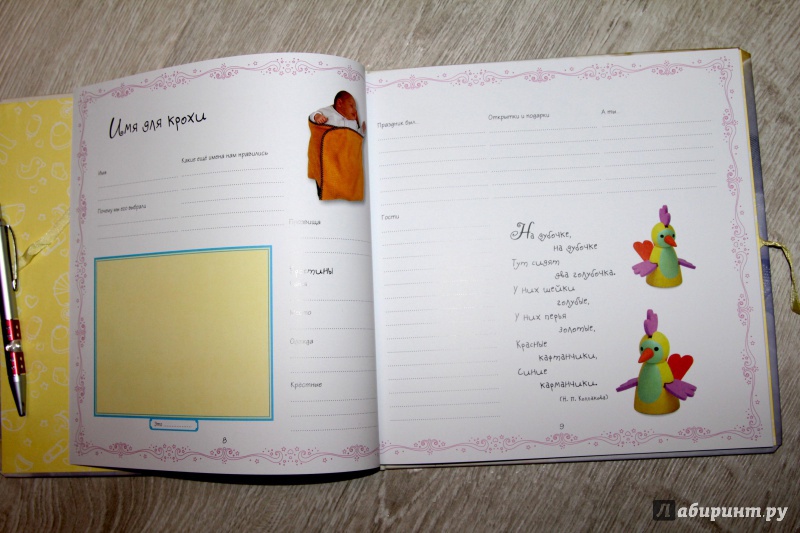 Имя для крохи
Имя
Какие ещё имена нам нравились
Почему мы его выбрали
Крестины
Одежда
Крестные
Это
8
Праздник был...
Открытки и подарки
А ты...
Гости
На дубочке,
на дубочке
Тут сидят
два голубочка.
У них шейки
голубые,
У них перья
золотые,
Красные
кафтанчики,
Синие
карманчики.
9
Лабиринт.ру